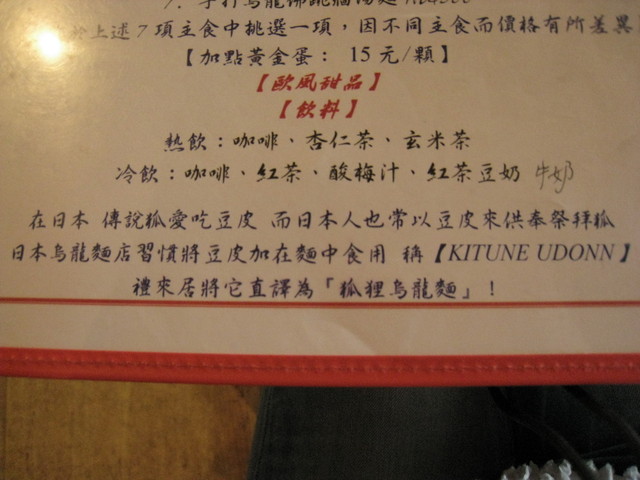 7. 手打烏龍佛跳牆湯麵
於上述7項主食中挑選一項，因不同主食而價格有所差異
【加點黃金蛋： 15元/顆】
【歐風甜品】
【飲料】
熱飲：咖啡、杏仁茶、玄米茶
冷飲：咖啡、紅茶、酸梅汁、紅茶豆奶 牛奶
在日本 傳說狐愛吃豆皮 而日本人也常以豆皮來供奉祭拜狐
日本烏龍麵店習慣將豆皮加在麵中食用 稱【KITUNE UDONN】
禮來居將它直譯為「狐狸烏龍麵」！